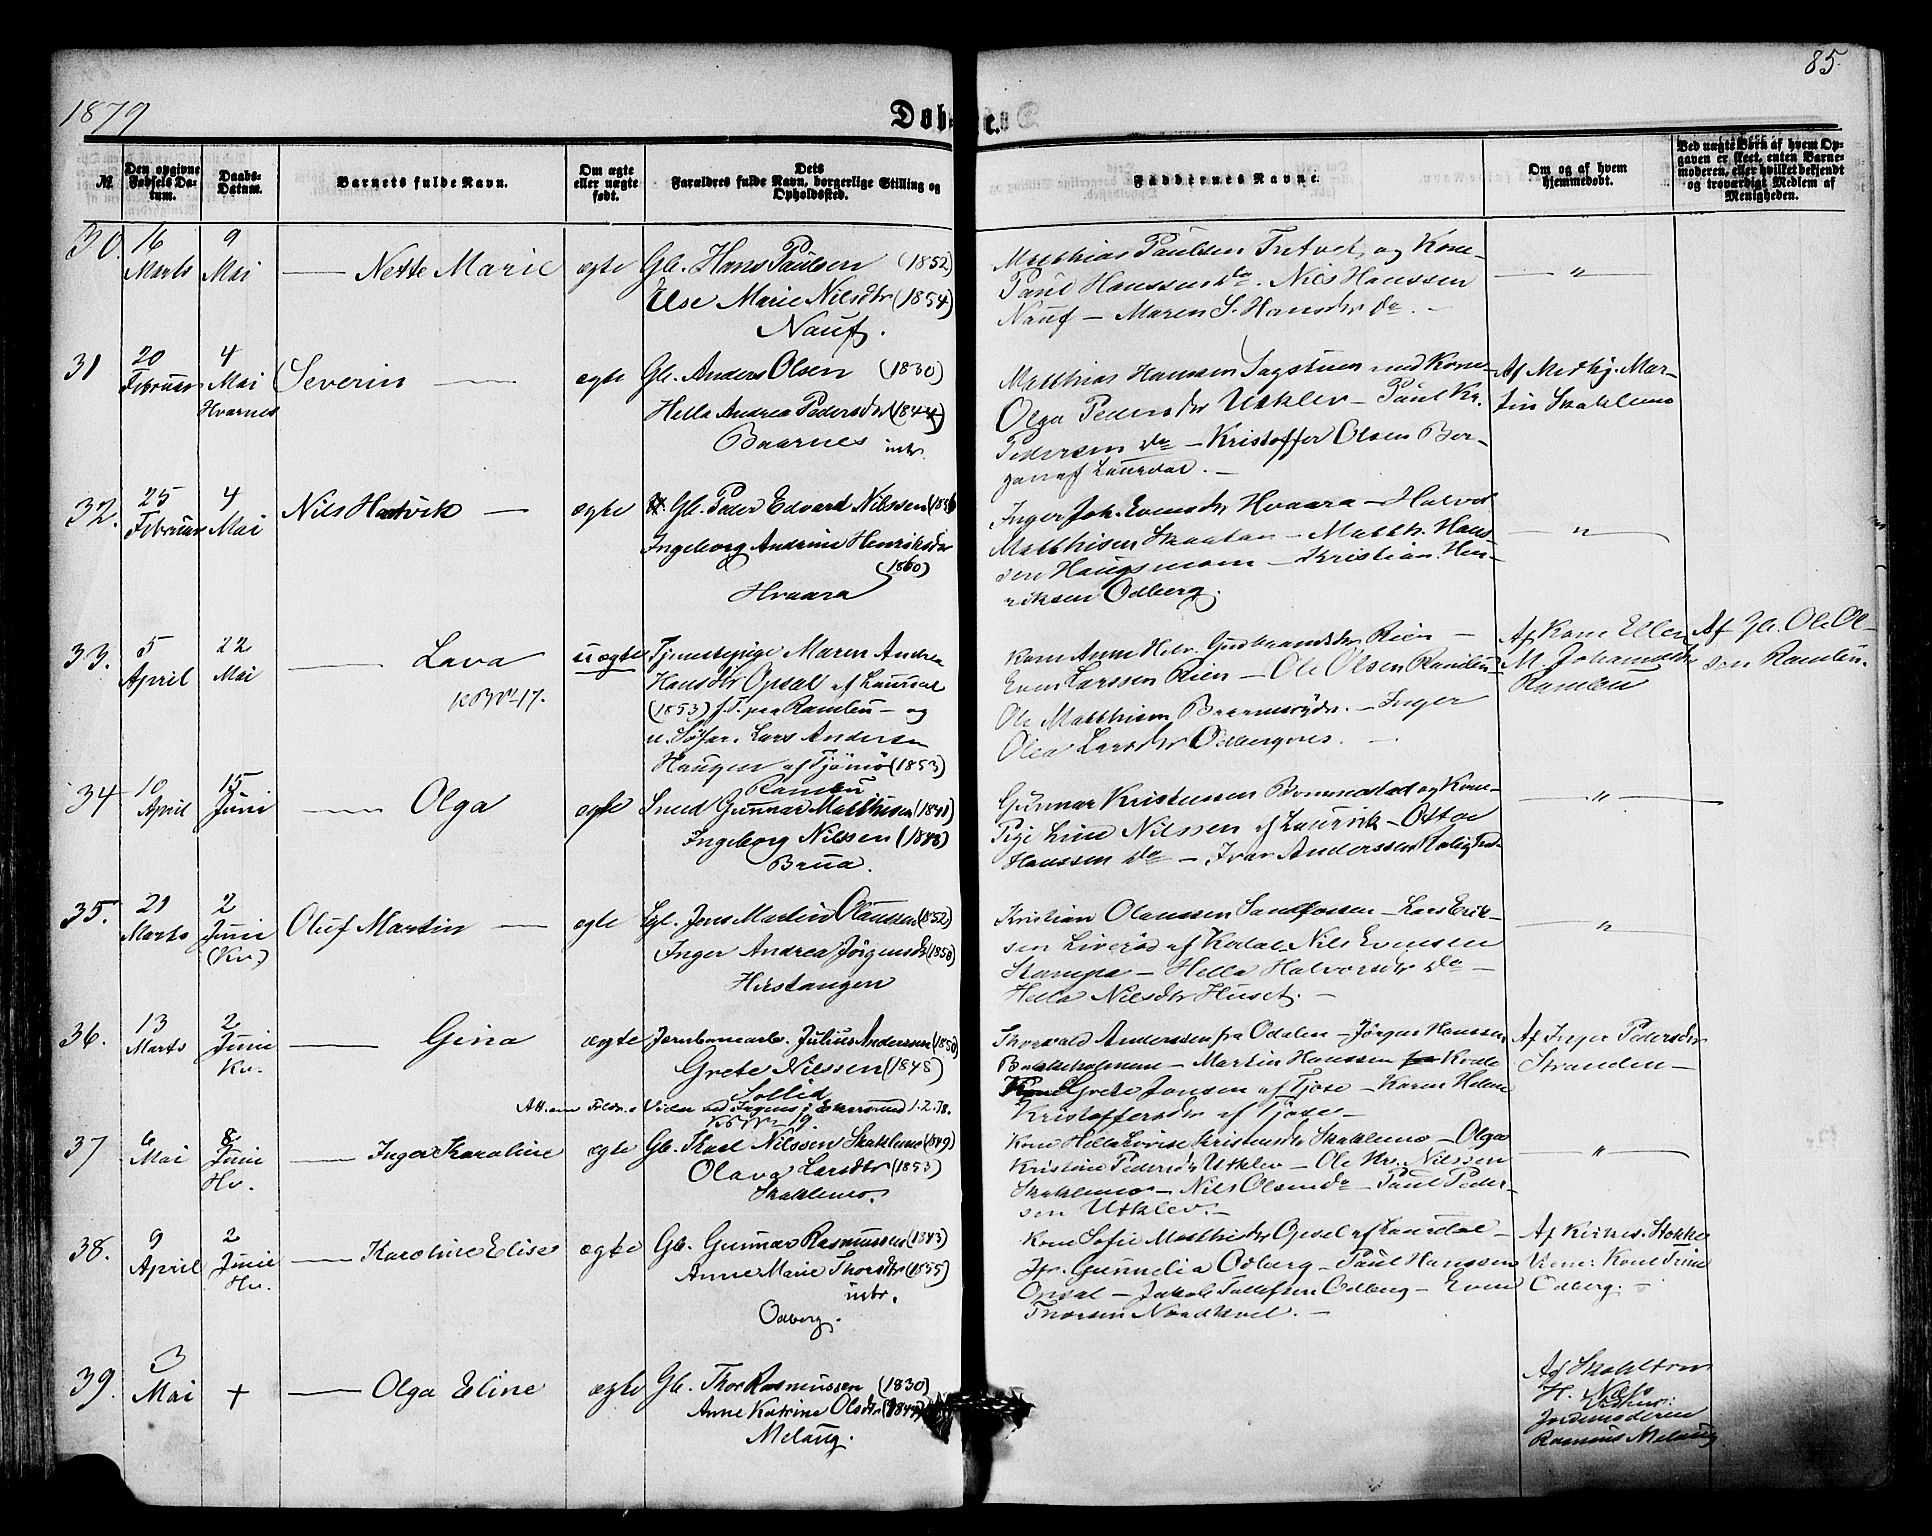 85.
1879
Døbte.
№
Den opgivne Fødsels Datum.
Daabs-Datum.
Barnets fulde Navn.
Om ægte eller uægte født.
Dets Forældres fulde Navn, borgerlige Stilling og Opholdssted.
Faddernes Navne.
Om og af hvem hjemmedøbt.
Ved uægte Børn af hvem Opgaven er skeet, enten Barnemoderen, eller hvilket bekjendt og troværdigt Medlem af Menigheden.
30. 16 Marts 9 Mai — Nette Marie ægte Gb. Hans Paulsen (1852)
Else Marie Nilsdtr (1854)
Nauf.
Matthias Paulsen Tretvet og Kone —
Paul Hanssen do. Nils Hanssen
Nauf — Maren S. Hansdtr do. —
— " —
31 20 Februar 4 Mai Hvarnes Severin — ægte Gb. Anders Olsen (1830)
Hella Andrea Pedersdtr (1844)
Baarnes intr.
Matthias Hanssen Sagstuen med Kone —
Olga Pedersdtr Utklev — Paul Kr.
Pedersen do — Kristoffer Olsen Ber-
gan af Laurdal. —
Af Methj. Mar-
tin Skahlemo
32. 25 Februar 4 Mai Nils Hartvik — ægte Gb. Peder Edvard Nilssen
Ingeborg Andrine Henriksdtr
(1860)
Hvaara
Inger Joh. Evensdtr Hvaara — Halvor
Matthisen Skaatan — Matth. Hans-
sen Haugsmoen — Kristian Hen-
riksen Odberg.
— " —
33. 5 April 22 Mai — Lava uægte Tjenestepige Maren Andrea
Hansdtr Opsal af Laurdal
(1853) f. T. paa Ramleu — og
u. Søfar. Lars Andersen
Haugen af Tjømø (1853)
Ramleu
Kone Anne Helv. Gudbrandsdtr Rien —
Even Larssen Rien — Ole Olsen Ramleu —
Ole Matthisen —Inger
Olea Larsdtr Odbergnes. —
Af Kone Ellen
M. Johannesdtr
Ramleu
Af Gb. Ole Ol-
sen Ramleu.
34 10 April 15 Juni — Olga ægte Smed Gunnar Matthisen
Ingeborg Nilssen (1848)
Brua.
Gunnar Kristenssen Bommestad og Kone —
Pige Line Nilssen af Laurvik — Ottar
Hanssen do — Ivar Anderssen
— " —
35. 29 Marts 2 Juni (Kv.) Oluf Martin — ægte Lgl. Jens Martin Olaussen (1852)
Inger Andrea Jørgensdtr (1850)
Histangen
Kristian Olaussen Sandfossen — Lars Erik-
sen Liverød af Kodal — Nils Evensen
Kampa — Hella Halvorsdtr do —
Hella Nilsdtr Huset. —
— " —
36. 13 Marts 2 Juni Kv. — Gina ægte Jernbanearb. Julius Anderssen (1850)
Grete Nilssen (1848)
Sollid
Thorvald Anderssen fra Odalen — Jørgen Hanssen
Bakkeholmene — Martin Hanssen Kvelle
Grete Jansen af Tjøse — Karen Helene
Kristoffersdtr af Tjøse —
Af Inger Pedersdtr
Stranden —
37 6 Mai 8 Juni Hv. — Inger Karoline ægte Gb. Thore Nilssen Skahlemo (1849)
Olava Larsdtr (1853)
Skahlemo.
Kone Hella Lovise Kristensdtr Skahlemo — Olga
Kristine Pedersdtr Utklev — Ole Kr. Nilssen
Skahlemo — Nils Olsen do — Paul Peder-
sen Utklev. —
— " —
38. 9 April 2 Juni Hv. — Karoline Elise ægte Gb. Gunnar Rasmussen (1843)
Anne Marie Thorsdtr (1855)
intr.
Odberg.
Kone Sofie Matthisdtr Opsal af Laurdal —
Jfr. Gunnelia Odberg — Paul Hanssen
Opsal — Jakob Tollefsen Odberg — Even
Thorsen Nordkvel. —
Af Kirkes. Stokke
Kone Trine
Odberg.
39. 3 Mai + — Olga Eline ægte Gb. Thor Rasmussen (1830)
Anne Katrine Olsdtr
Melaug.
Af
H. Næs
Vidner:
Jordemoderen
Rasmus Melaug